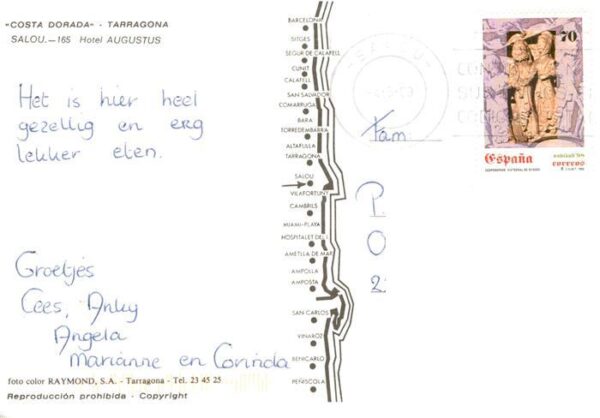 "COSTA DORADA" - TARRAGONA
SALOU.—165 Hotel AUGUSTUS
Het is hier heel
gezellig en erg
lekker eten.
Groetjes
Cees, Anky
Angela
Marianne en Corinda
foto color RAYMOND, S.A. - Tarragona - Tel. 23 45 25
Reproducción prohibida - Copyright
BARCELONA
SITGES
SEGUR DE CALAFELL
CUNIT
CALAFELL
SAN SALVADOR
COMARRUGA
BARA
TORREDEMBARRA
ALTAFULLA
TARRAGONA
SALOU
VILAFORTUNY
CAMBRILS
MIAMI-PLAYA
HOSPITALET DEL I.
AMETLLA DE MAR
AMPOLLA
AMPOSTA
SAN CARLOS
VINAROZ
BENICARLO
PEÑISCOLA
SALOU
Fam.
P.
O
2
70
España
correos